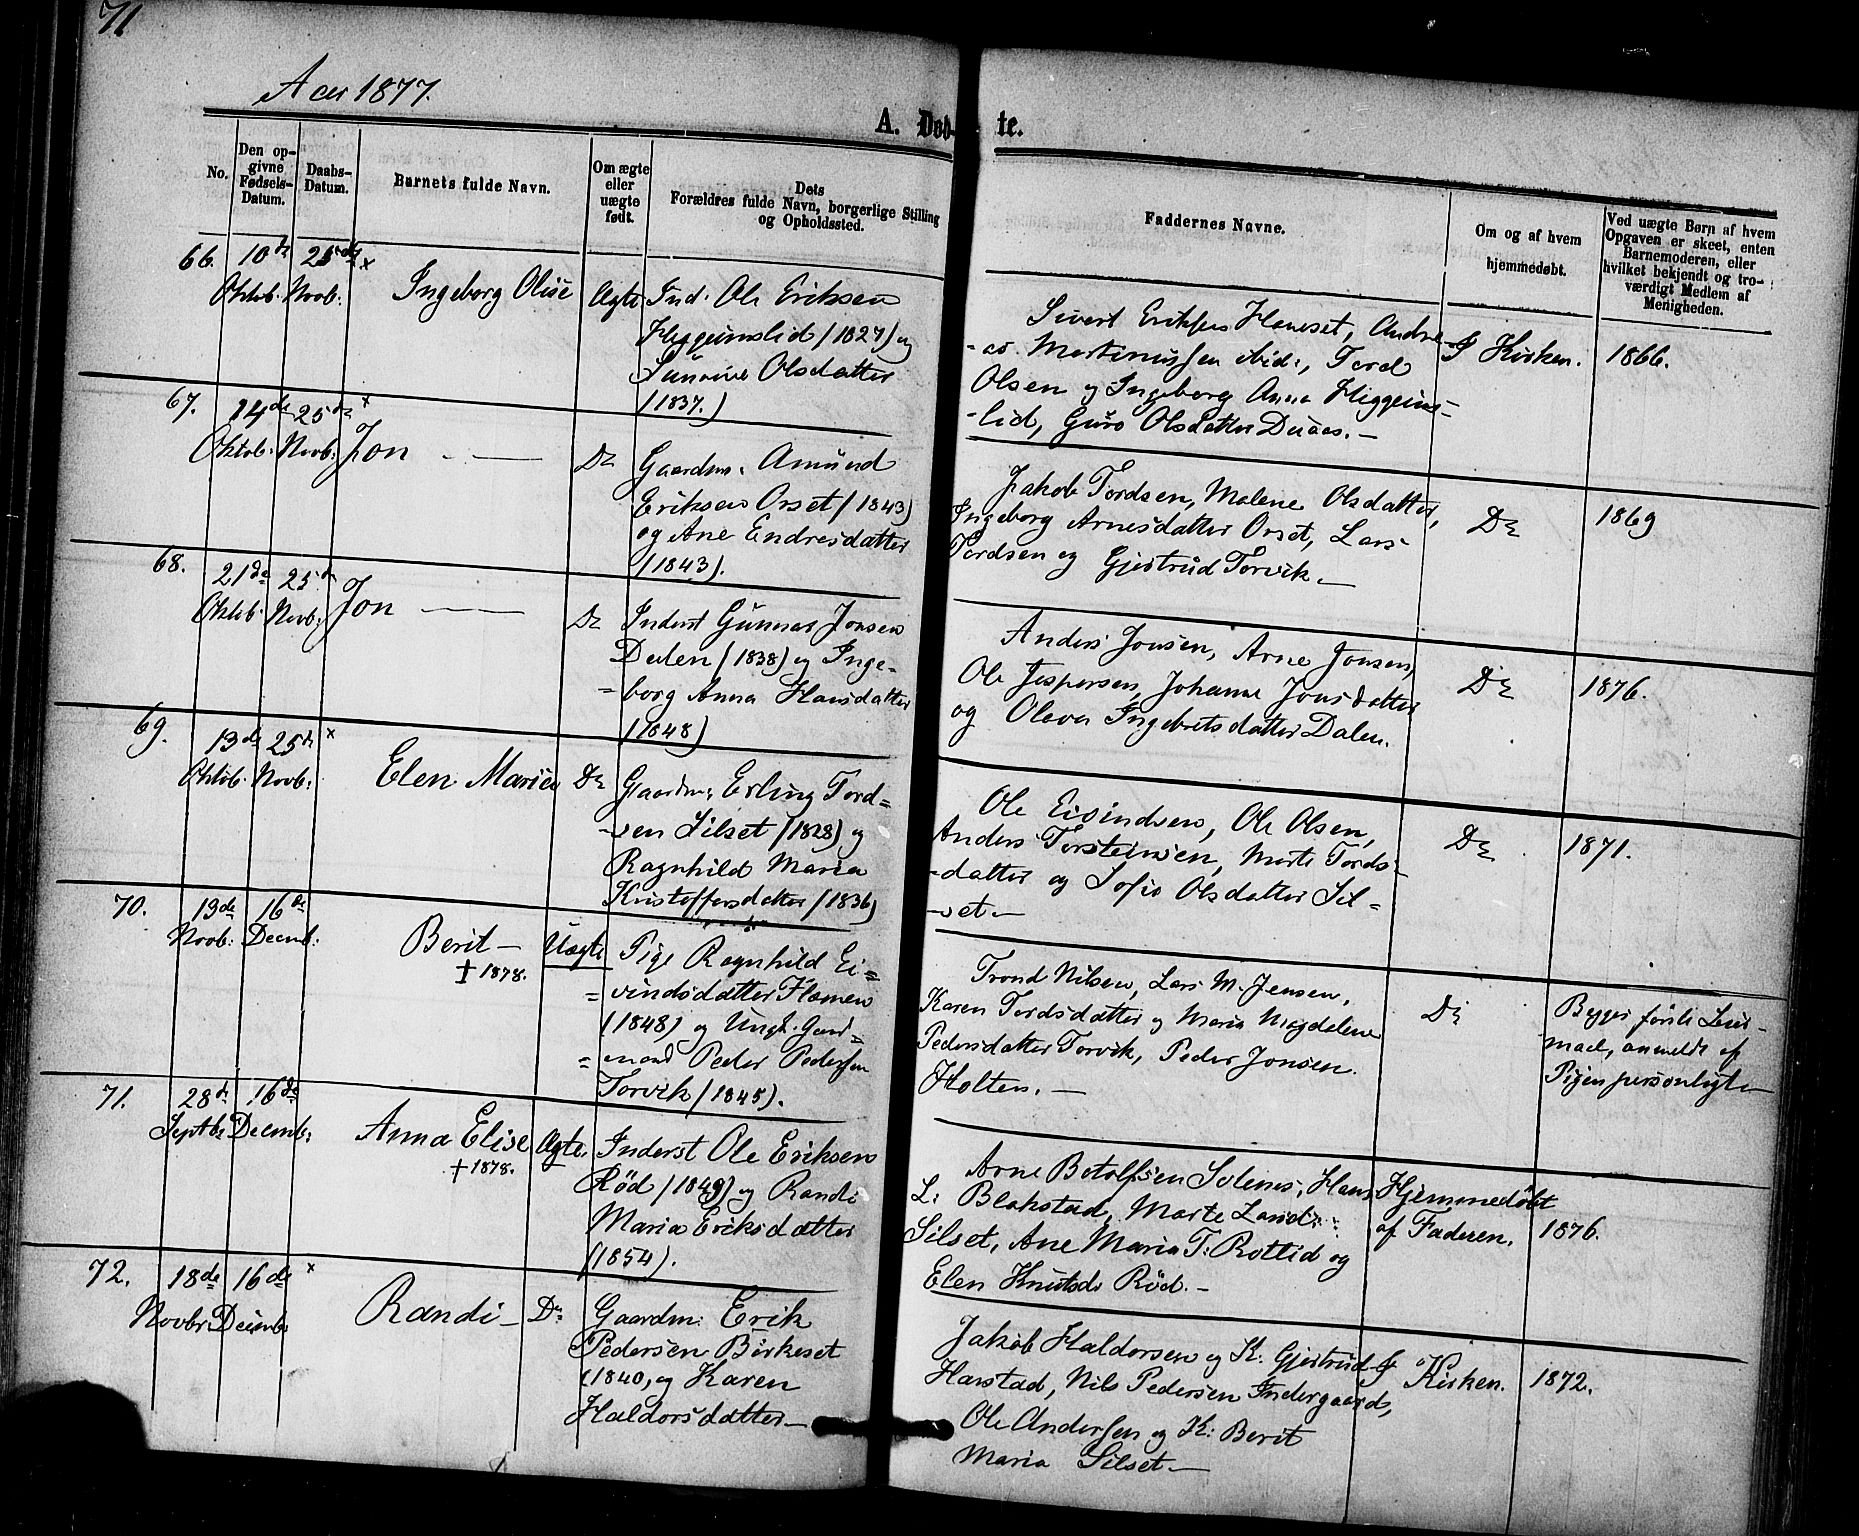 71
Aar 1877.
A. Døb- te.
No.
Den op-
givne
Fødsels-
Datum.
Daabs-
Datum.
Barnets fulde Navn.
Om ægte
eller
uægte
født.
Dets
Forældres fulde Navn, borgerlige Stilling
og Opholdssted.
Faddernes Navne.
Om og af hvem
hjemmedøbt.
Ved uægte Børn af hvem
Opgaven er skeet, enten
Barnemoderen, eller
hvilket bekjendt og tro-
værdigt Medlem af
Menigheden.
66. 10de 25de x
Oktob: Novb: Ingeborg Olise Ægte Ind. Ole Eriksen
Heggeimslid (1827) og
Olsdatter
(1837.)
Sivert Eriksen Hanset, Andre-
-as Martinussen ibid:, Tord
Olsen og Ingeborg Anna Heggeims-
-lid, Guro Olsdatter Duaas.-
I Kirken. 1866.
67. 14de 25de x
Oktob: Novb: Jon — — Do Gaardm. Amund
Eriksen Orset (1843)
og Ane Endresdatter
(1843).
Jakob Tordsen, Malene Olsdatter,
Ingeborg Arnesdatter Orset, Lars
Tordsen og Gjertrud Torvik.-
Do 1869
68. 21de 25d
Oktob. Novb: Jon — — Do Inderst Gunnar Jonsen
Dalen (1838) og Inge-
=borg Anna Hansdatter
(1848)
Anders Jonsen, Arne Jonsen,
Ole Jespersen, Johanne Jonsdatter
og Oleva Ingebretsdatter Dalen.
Do 1876.
69. 13de 25de x
Oktob. Novb: Elen Marie Do Gaardm: Erling Tord=
-sen Silset (1828) og
Ragnhild Maria
Kristoffersdatter (1836)
Ole Eisindsen, Ole Olsen,
Anders Torsteinsen, Marte Tords-
-datter og Sofie Olsdatter Sil=
-set.-
Do 1871.
70. 13de 16de
Novb: Decmb: Berit - Uægte Pige Ragnhild Ei=
† 1878.
=vindsdatter Flemen
(1848) og Ungk. Gaard=
=mand Peder Pedersen
Torvik (1845).
Trond Nilsen, Lars M. Jensen,
Karen Tordsdatter og Maria Magdalene
Pedersdatter Torvik, Peder Jonsen
Holten.-
Do Begges første Leier-
maal, anmeldt af
Pigen personligt
71. 28de 16de
Septbr Decmb: Anna Elise Ægte. Inderst Ole Eriksen
† 1878.
Rød (1849) og Randi
Maria Eriksdatter
(1854).
Arne Botolfsen Solenes, Hans
L: Blakstad, Marte
Silset, Ane Maria T: Rottid og
Elen Knutsd: Rød.-
Hjemmedøbt
af Faderen. 1876.
72. 18de 16de x
Novbr Decmb: Randi - Do Gaardm: Erik
Pedersen Birkeset
(1840, og Karen
Haldorsdatter -
Jakob Haldorsen og K. Gjertrud
Harstad, Nils Pedersen Indergaard,
Ole Andersen og K: Berit
Maria Silset.-
I Kirken. 1872.